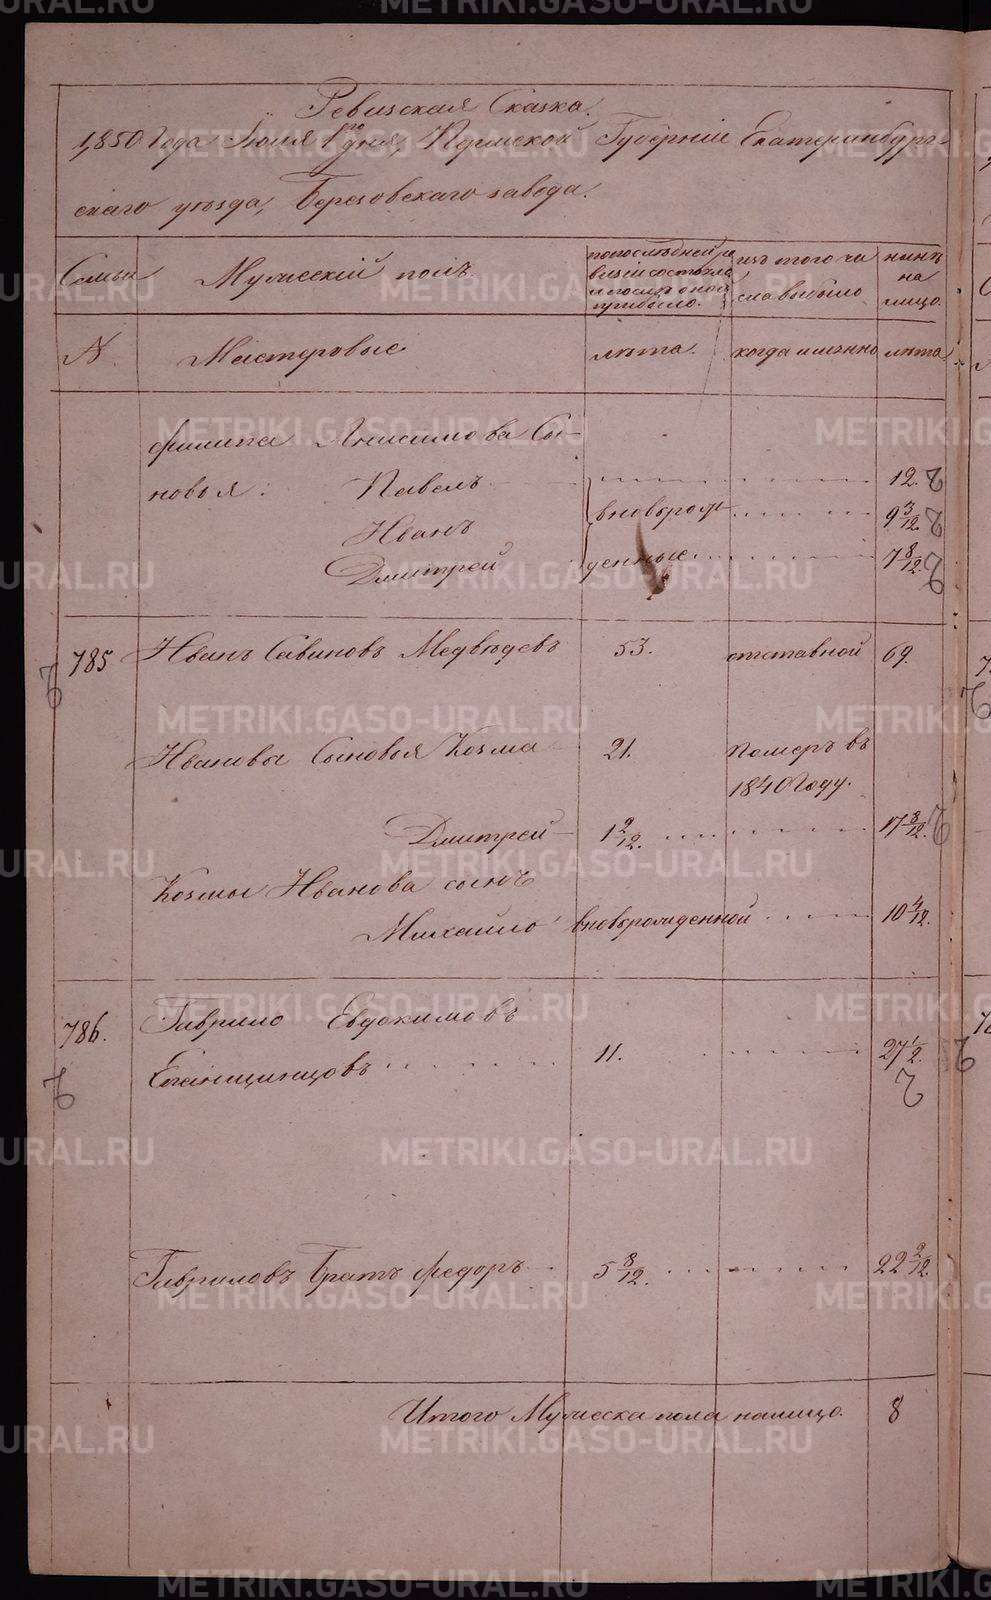 Ревизская Сказка.
1850 Года Июля 1го дня, Пермской Губернiи Екатеринбург-
скаго уѣзда, Березовскаго завода.
Семьи
Мужескiй полъ.
по последней ре
визiи состояло
и после оной
прибыло.
изъ того чи
сла выбыло
нынѣ
на
лицо.
№.
Мастеровые
лѣта.
когда именно
лѣта
Филипа Анисимова Сы-
новья: Павелъ 12.
Иванъ вновьрож- 9 3/12.
Дмитрей денные 7 8/12.
785 Иванъ Савиновъ Медвѣдевъ 53. отставной 69.
Ивановы Сыновья Козма 21. Померъ въ
1840 Году.
Дмитрей 1 9/12. 17 8/12.
Козмы Иванова сынъ
Михайло вновьрожденной 10 4/12.
786. Гаврило Евдокимовъ
11. 27 1/2.
Гавриловъ Братъ Федоръ 5 8/12. 22 2/12.
Итого Мужеска пола налицо. 8
METRIKI.GASO-URAL.RU